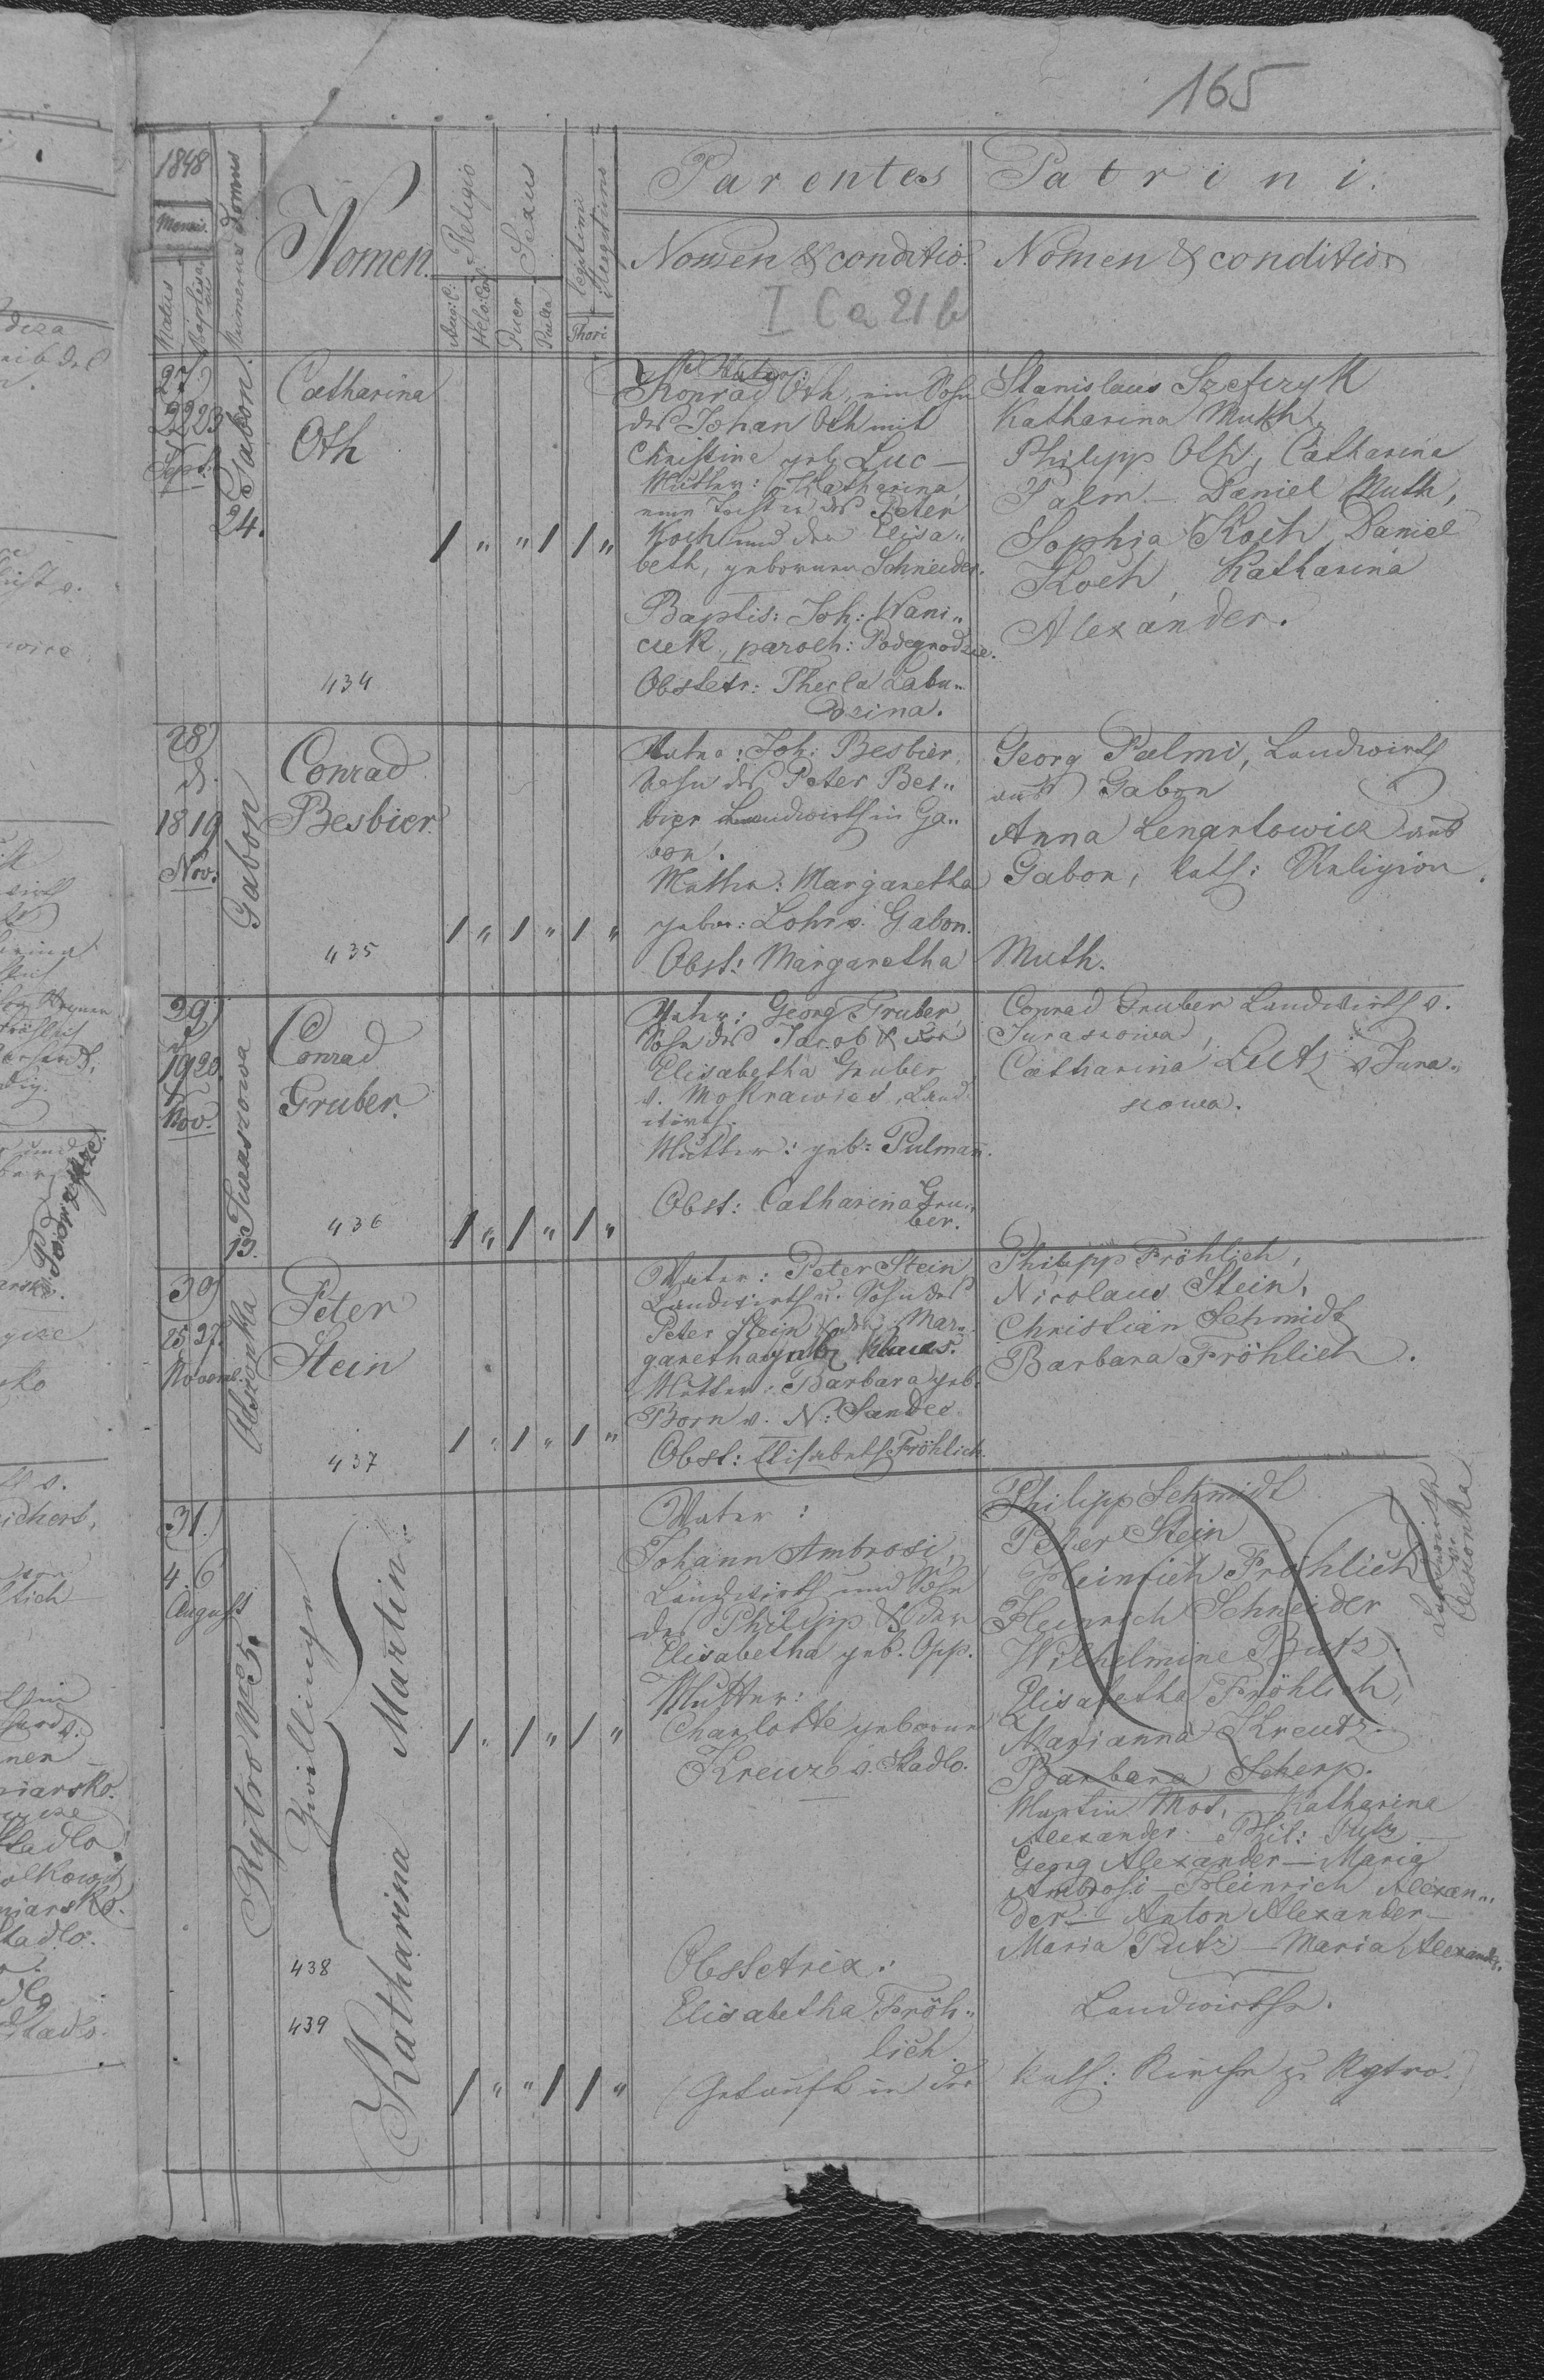 165
1848
Mensis.
Natus
Baptisatus
Numerus Domus
Nomen.
Religio
Aug: C:
Helv: Conf:
Sexus
Puer
Puella
Legitimi
Illegitimi
Thori
Parentes
Nomen & conditio.
Patrini.
Nomen & conditio
I Ca 21 b
27)
22 23
Sept.
Gabon.
24.
Catharina
Oth
434
1 " " 1 1 "
Vater:
Konrad Oth, ein Sohn
des Johan Oth mit
Christina geb. Luc—
Mutter: Katharina,
eine Tochter des Peter
Koch und der Elisa„
beth, gebornen Schneider.
Baptis: Joh: Wani„
cuek, paroch: Podegrodzie.
Obstetr: Thecla Labu„
dzina.
Stanislaus Szefczyk
Katharina Muth
Philipp Oth, Catharina
Palm — Daniel Muth,
Sophia Koch, Daniel
Koch, Katharina
Alexander.
28)
18 19
Nov:
Gabon
Conrad
Besbier.
435
1 " 1 " 1 "
Vater: Joh: Besbier,
Sohn des Peter Bes„
bier Landwirth in Ga„
bon.
Mutter: Margaretha
gebor: Lohr v. Gabon.
Obst: Margaretha Muth.
Georg Palmi, Landwirth
aus Gabon
Anna Lenartowicz aus
Gabon, kath: Religion.
29)
19 20
Nov.
Juraszowa
13.
Conrad
Gruber.
436
1 " 1 " 1 "
Vater: Georg Gruber,
Sohn des Jacob & der
Elisabetha Gruber
v. Mokrawies, Land
wirth.
Mutter: geb: Pulmañ.
Obst: Catharina Gru„
ber.
Conrad Gruber Landwirth v.
Juraszowa,
Catharina Lutz v Jura„
szowa.
30)
25 27.
Novemb.
Peter
Stein
437
1 " 1 " 1 "
Vater: Peter Stein
Landwirth u. Sohn des
Peter Stein & der Mar„
garetha geb. Klaus.
Mutter: Barbara geb.
Born v. N: Sandec.
Obst: Elisabeth Fröhlich.
Philipp Fröhlich,
Nicolaus Stein,
Christian Schmidt
Barbara Fröhlich.
31.)
4. 6
August
Rytro Nr 5.
Zwillinge
Martin.
Katharina
438
439
1 " 1 " 1 "
1 " " 1 1 "
Vater:
Johann Ambrosi,
Landwirth und Sohn
des Philipp & der
Elisabetha geb. Opp.
Mutter:
Charlotte geborne
Kreuz v. Stadlo.
Obstetrix:
Elisabetha Fröh„
lich.
(Getauft in der kath: Kirche zu Rytro.)
Philipp Schmidt
Peter Stein
Heinrich Fröhlich
Heinrich Schneider
Wilhelmine Butz.
Elisabetha Fröhlich,
Marianna Kreutz.
Barbara Scherp.
Martin Mos, Katharina
Alexander. Phil: Putz
Georg Alexander — Maria
Ambrosi — Heinrich Alexan„
der — Anton Alexander —
Maria Putz — Maria Alexander.
Landwirthe.